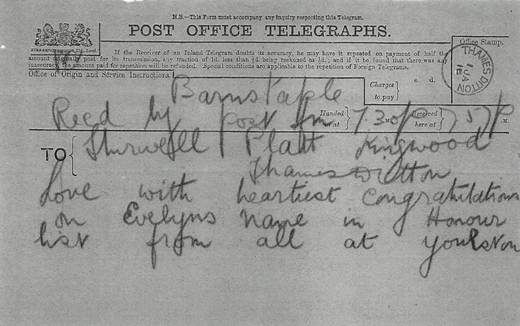 N.B.—This Form must accompany any inquiry respecting this Telegram.
POST OFFICE TELEGRAPHS.
If the Receiver of an Inland Telegram doubts its accuracy, he may have it repeated on payment of half the
amount originally paid for its transmission, any fraction of 1d. less than ½d. being reckoned as ½d.; and if it be found that there was any
inaccuracy, the amount paid for repetition will be refunded. Special conditions are applicable to the repetition of Foreign Telegrams.
Office of Origin and Service Instructions.
Charges to pay
s. d.
Office Stamp.
THAMES DITTON
1 JA
Barnstaple
Recd by post
Handed in at
7.30p
Received here at
7.57p
TO
Platt Kingwood
Thames Ditton
Love with heartiest congratulations
on Evelyns name in Honour
list from all at Youlston